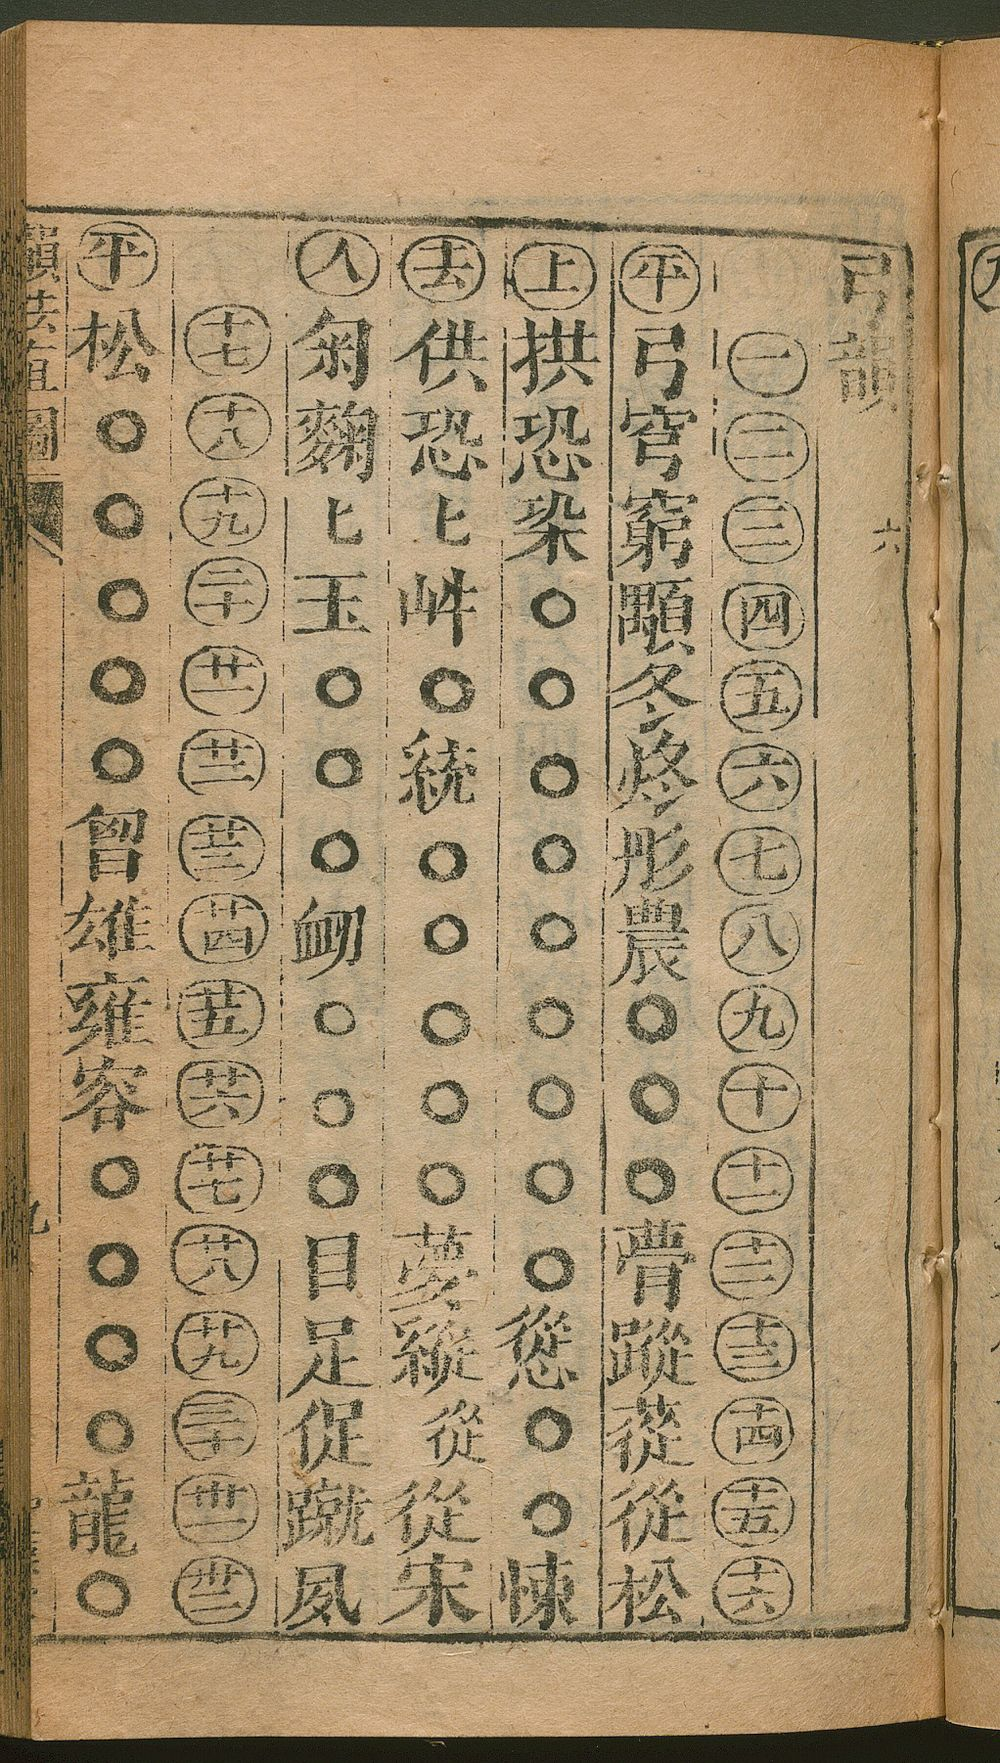 弓韻
六
一二三四五六七八九十十一十二十三十四十五十六
平弓穹窮顒冬炵彤農○○○瞢蹤蓯從松
上拱恐梁○○○○○○○○○慫○○悚
去供恐匕岄○統○○○○○夢縱從從宋
入匊麴匕玉○○○衂○○○目足促蹴夙
十七十八十九二十廿一廿二廿三廿四廿五廿六廿七廿八廿九三十卅一卅二
平松○○○○○雄雍容○○○○龍○
韻法直圖
九